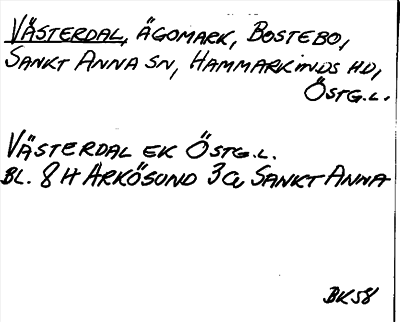 VÄSTERDAL, ÄGOMARK, BOSTEBO,
SANKT ANNA SN, HAMMARKINDS HD,
ÖSTG.L.
VÄSTERDAL EK ÖSTG.L.
BL. 8 H ARKÖSUND 3a SANKT ANNA
BK58